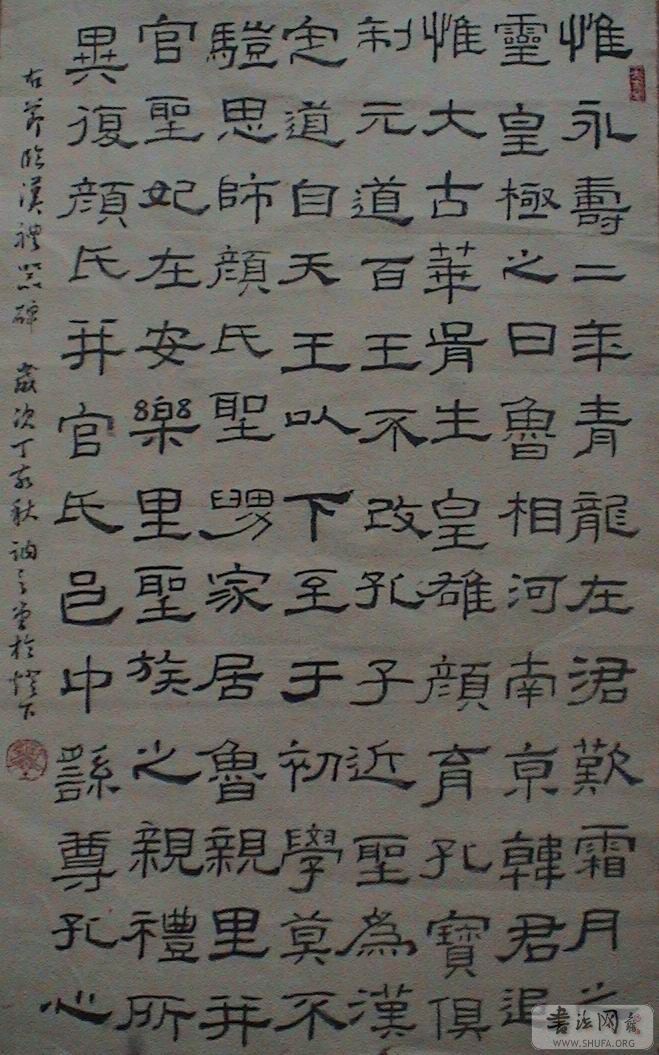 惟永壽二年青龍在涒歎霜月之
靈皇極之日魯相河南京韓君追
惟大古華胥生皇雄顏育孔寶俱
制元道百王不改孔子近聖為漢
定道自天王以下至于初學莫不
驥思師顏氏聖舅家居魯親里并
官聖妃在安樂里聖族之親禮所
異復顏氏并官氏邑中繇尊孔心
右節臨漢禮器碑 歲次丁亥秋 訥 於燈下
書法网
WWW.SHUFA.ORG